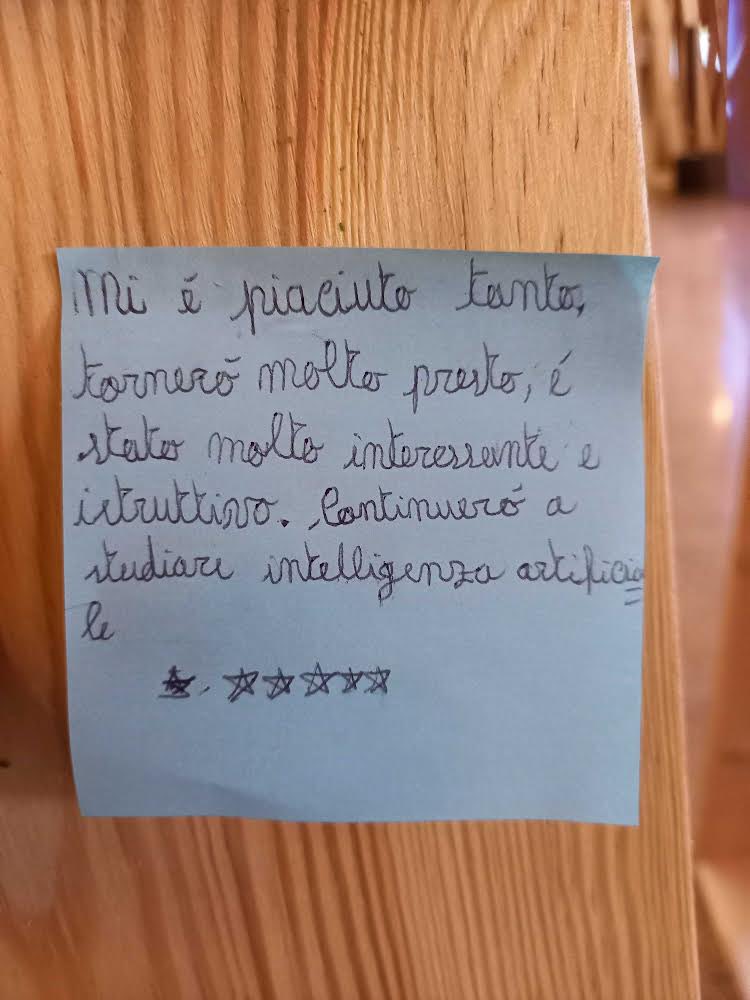 Mi é piaciuto tanto,
torneró molto presto, é
stato molto interessante e
istruttivo. Continueró a
studiare intelligenza artificia=
le
☆☆☆☆☆